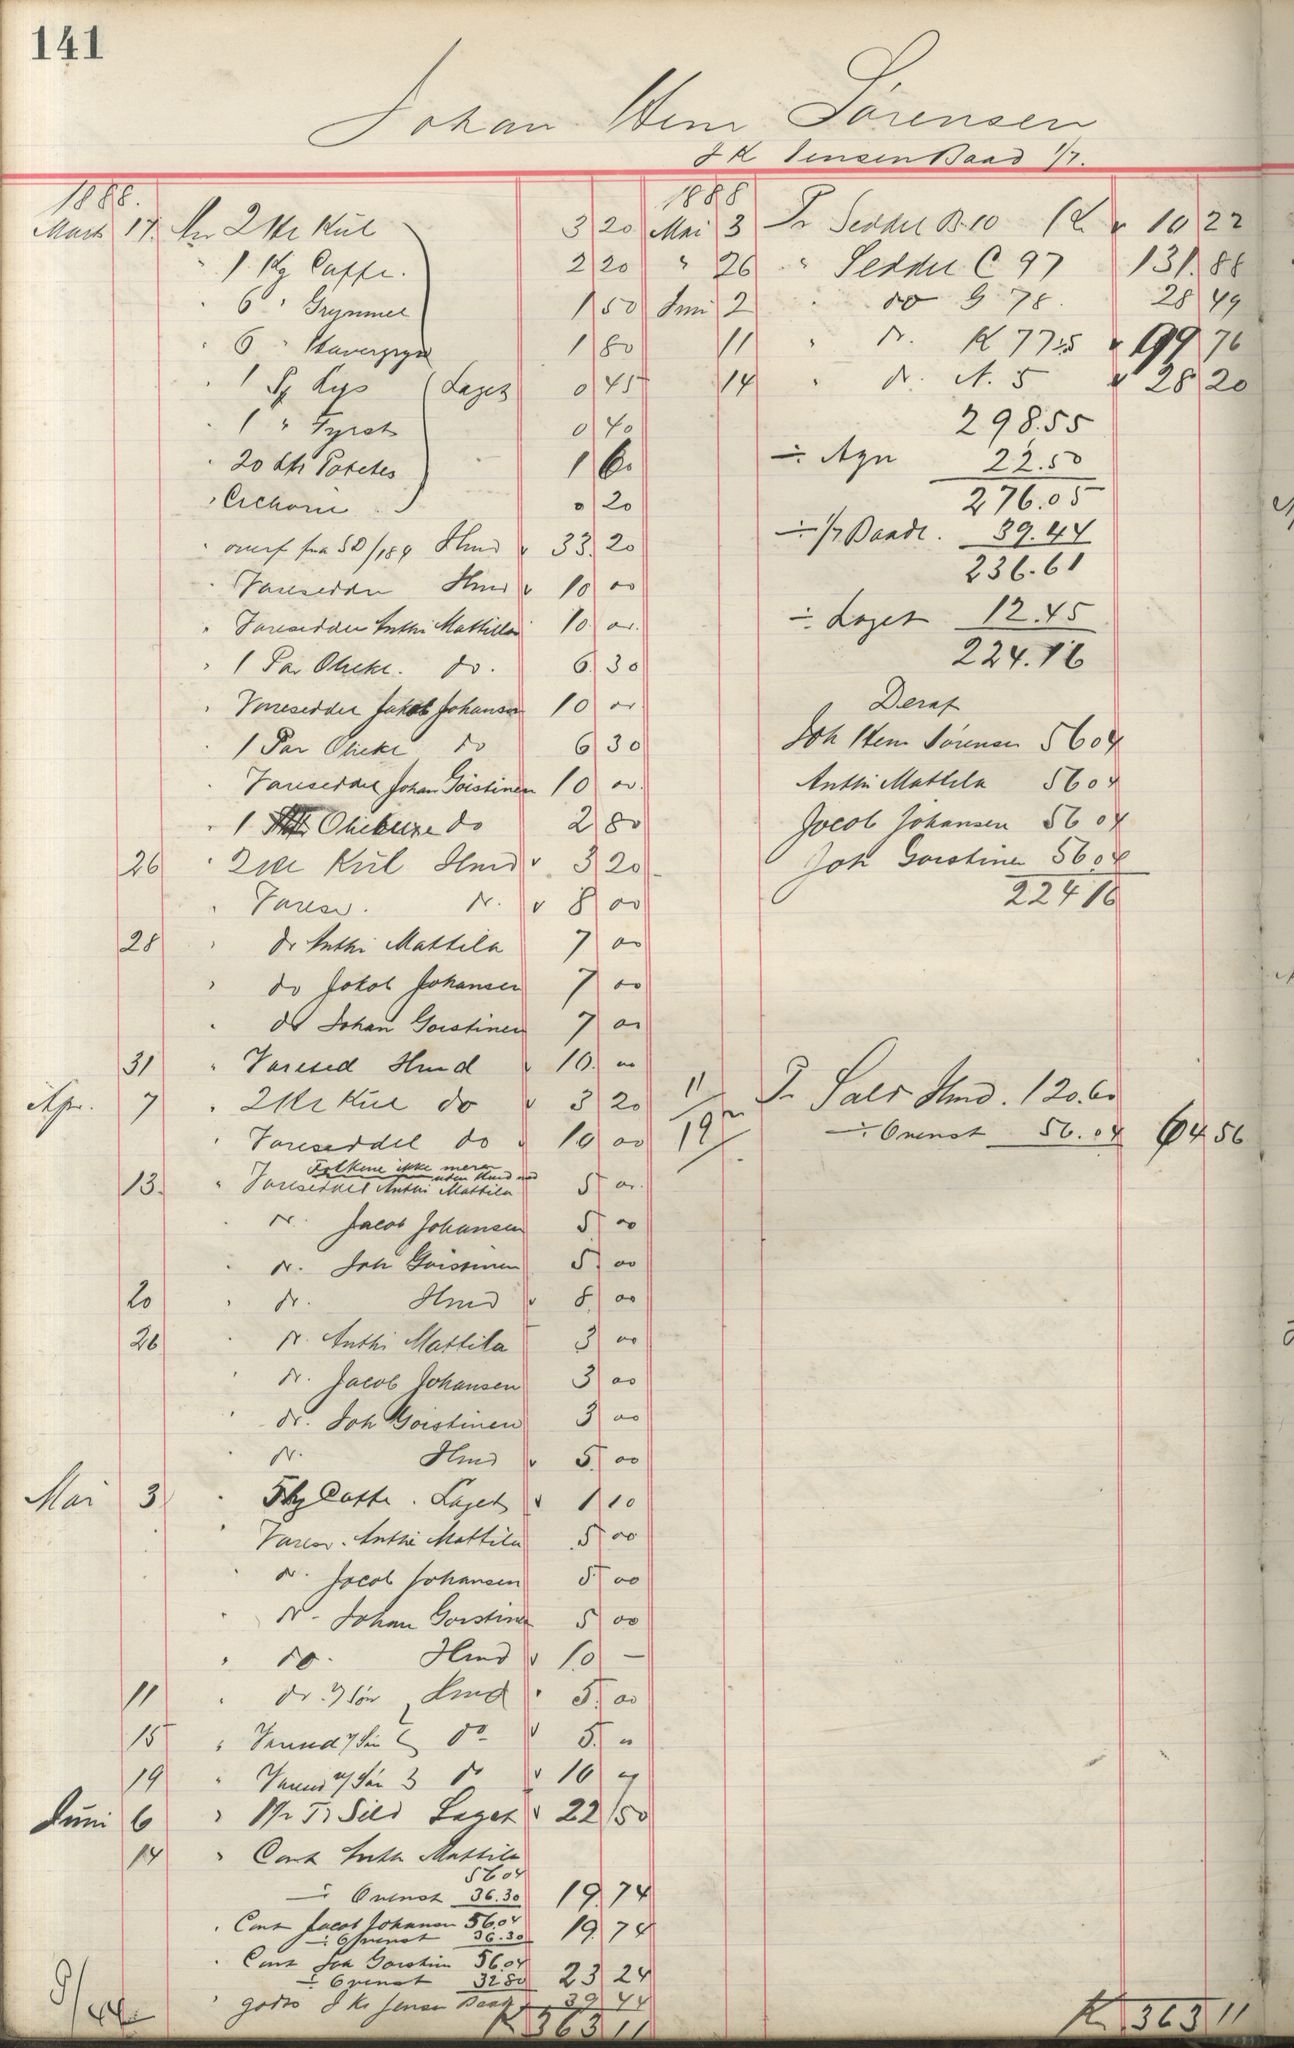 141
Johan Hem Sørensen
J K Jensen Baad 1/7.
1888.
Marts 17. An 2 Kr Kul 3 20
" 1 Kg Caffe. 2 20
" 6 " Grynmel 1 50
" 6 " Havregryn 1 80
" 1 Pk Lys Laget 0 45
" 1 " Fyrst 0 40
" 20 Potetes 1 60
" Cichorie 0 20
" overf fra SD/189 Hmd v 33. 20
" Vareseddel Hmd v 10 00
" Vareseddel Anthi Mattila 10 00
" 1 Par do. 6 30
" Vareseddel Jakob Johansen 10 00
" 1 Par do 6 30
" Vareseddel Johan Goistinen 10 00
" 1 do 2 80
26 " 2 Kr Kul Hmd v 3 20
" Varesed. do. v 8 00
28 " do Anthi Mattila 7 00
" do Jakob Johansen 7 00
" do Johan Goistinen 7 00
31 " Varesed Hmd v 10. 00
Apr. 7 " 2 Kr Kul do v 3 20
" Vareseddel do v 10 00
Folkene ikke mere uden Hmd
13. " Vareseddel Anthi Mattila 5 00
" do. Jacob Johansen 5 00
" do. Joh Goistinen 5 00
20 " do. Hmd v 8 00
26 " do. Anthi Mattila 3 00
" do. Jacob Johansen 3 00
" do. Joh Goistinen 3 00
" do. Hmd v 5. 00
Mai 3 " Caffe. Laget v 1 10
" Varesed. Anthi Mattila 5 00
" do. Jacob Johansen 5 00
" do - Johan Goistinen 5 00
" do. Hmd v 10 —
11 " do. v/ Søn Hmd v 5. 00
15 " Varesed v/ Søn do v 5. "
19 " Varesed v/ Søn 3 do v 10 "
Juni 6 " Tr Sild Laget v 22 50
14 " Cont Anth Mattila
56 04
÷ Ovenst 36.30 19. 74
" Cont Jacob Johansen 56.04
÷ Ovenst 36.30 19. 74
" Cont Joh Goistinen 56.04
÷ Ovenst 32 80 23 24
" godss J Kr Jensen Baad 39 44
K 363 11
1888
Mai 3 Pr Seddel B. 10 v 10 22
" 26 " Seddel C 97 131. 88
Juni 2 " do G 78. 28 49
11 " do. K 77 v 99 76
14 " do. N. 5 v 28 20
298.55
÷ Agn 22.50
276.05
÷ 1/7 Baade. 39.44
236.61
÷ Laget 12.45
224.16
Deraf
Joh Hem Sørensen 56 04
Anthi Mattila 56 04
Jacob Johansen 56 04
Joh Goistinen 56.04
224 16
11/19 Pr Saldo Hmd. 120.60
÷ Ovenst 56.04 64 56
K. 363 11